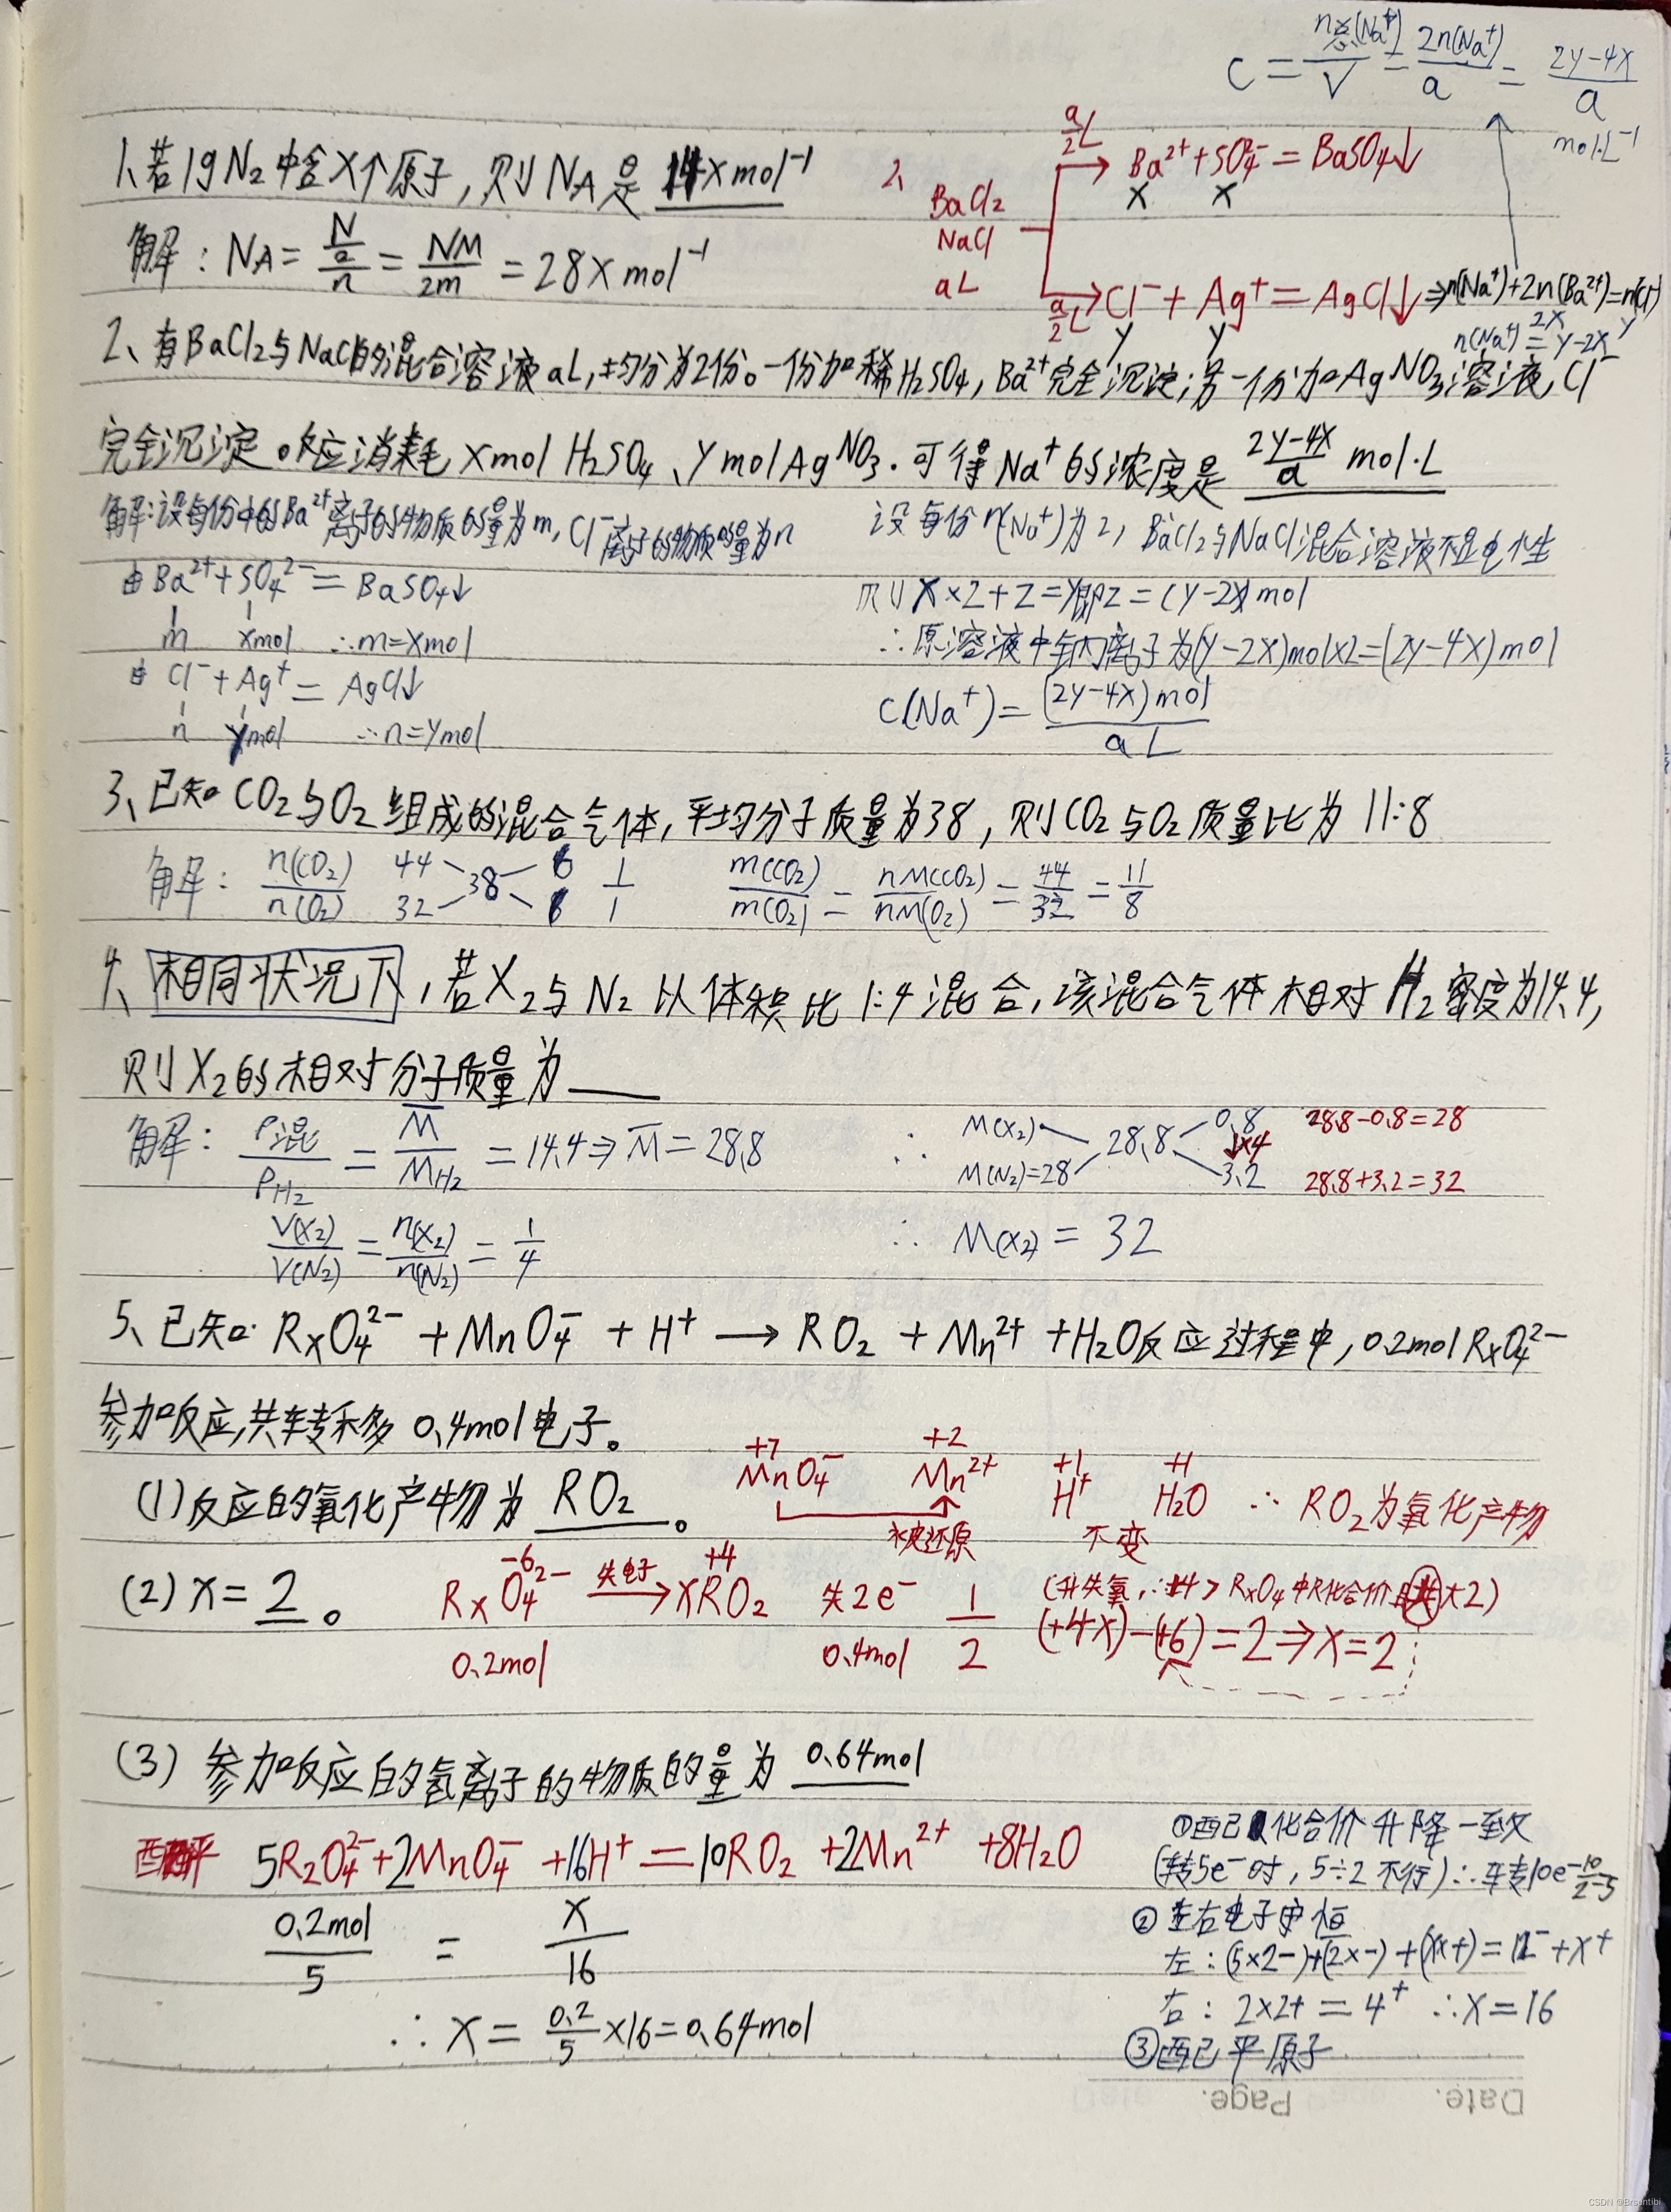 C = n总(Na⁺)/V = 2n(Na⁺)/a = (2y-4x)/a mol·L⁻¹
1、若1gN₂中含X个原子，则NA是 14Xmol⁻¹
解：NA = (N/2)/n = NM/2m = 28X mol⁻¹
2、 BaCl₂ NaCl aL
a/2 L → Ba²⁺ + SO₄²⁻ = BaSO₄↓
x x
a/2 L → Cl⁻ + Ag⁺ = AgCl↓ ⇒ n(Na⁺)+2n(Ba²⁺)=n(Cl⁻)
y y 2x y
n(Na⁺) = y-2x
2、有BaCl₂与NaCl的混合溶液aL，均分为2份。一份加稀H₂SO₄，Ba²⁺完全沉淀；另一份加AgNO₃溶液，Cl⁻
完全沉淀。反应消耗xmol H₂SO₄、ymolAgNO₃.可得Na⁺的浓度是 (2y-4x)/a mol·L
解：设每份中的Ba²⁺离子的物质的量为m，Cl⁻离子的物质的量为n
由Ba²⁺+SO₄²⁻ = BaSO₄↓
m xmol ∴m=xmol
由 Cl⁻+Ag⁺ = AgCl↓
n ymol ∴n=ymol
设每份n(Na⁺)为z，BaCl₂与NaCl混合溶液不显电性
则x×2+z=y即z=(y-2x)mol
∴原溶液中钠离子为(y-2x)mol×2=(2y-4x)mol
C(Na⁺) = (2y-4x)mol / aL
3、已知CO₂与O₂组成的混合气体，平均分子质量为38，则CO₂与O₂质量比为 11:8
解： n(CO₂)/n(O₂) 44 32 38 6 6 1/1 m(CO₂)/m(O₂) = nM(CO₂)/nM(O₂) = 44/32 = 11/8
4、相同状况下，若X₂与N₂以体积比1:4混合，该混合气体相对H₂密度为14.4，
则X₂的相对分子质量为
解： ρ混/ρH₂ = M̄/MH₂ = 14.4 ⇒ M̄ = 28.8
V(X₂)/V(N₂) = n(X₂)/n(N₂) = 1/4
∴ M(X₂) 28.8 0.8 28.8-0.8=28
↓×4
M(N₂)=28 3.2 28.8+3.2=32
∴ M(X₂) = 32
5、已知: RxO₄²⁻ + MnO₄⁻ + H⁺ → RO₂ + Mn²⁺ + H₂O反应过程中，0.2molRxO₄²⁻
参加反应，共转移 0.4mol电子。
(1)反应的氧化产物为 RO₂ 。
+7 +2 +1 +1
MnO₄⁻ Mn²⁺ H⁺ H₂O ∴ RO₂为氧化产物
被还原 不变
(2) x= 2 。
-6 +4
RxO₄²⁻ 失电子→ xRO₂ 失2e⁻ 1/2
0.2mol 0.4mol
(升失氧，∴+4 > RxO₄中R化合价且共大2)
(+4x)-(+6)=2⇒x=2
(3) 参加反应的氢离子的物质的量为 0.64mol
配平 5R₂O₄²⁻+2MnO₄⁻+16H⁺ = 10RO₂+2Mn²⁺+8H₂O
0.2mol/5 = x/16
∴ x = 0.2/5 ×16=0.64mol
①配化合价升降一致
(转5e⁻时，5÷2不行)∴转10e⁻ 10/2=5
②左右电子守恒
左：(5×2-)+(2×-)+(x×+)=12⁻+x⁺
右： 2×2+ = 4⁺ ∴x=16
③配平原子
Date. Page.
CSDN @Brsentibi